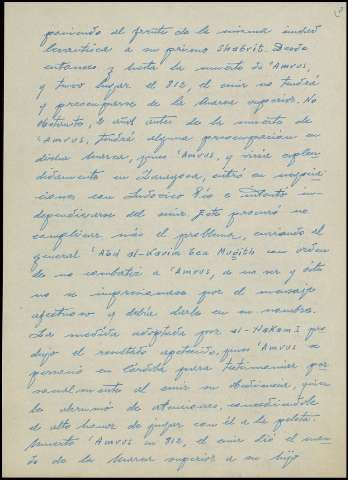 poniendo al frente de la misma
a su primo Shabrit. Desde
entonces y hasta la muerte de 'Amrus,
que tuvo lugar el 812, el emir no tendrá
que preocuparse de la Marca superior. No
obstante, 2 años antes de la muerte de
'Amrus, tendrá alguna preocupación en
dicha Marca, pues 'Amrus, que vivía esplen
didamente en Zaragoza, entró en negocia
ciones con Ludovico Pío e intentó in
dependizarse del emir. Este procuró no
complicar más el problema, enviando al
general 'Abd al-Karim ben Mugith con orden
de no combatir a 'Amrus, a no ser que éste
no se impresionase por el mensaje
afectuoso que debía darle en su nombre.
La medida adoptada por al-Hakam I pro
dujo el resultado apetecido, pues 'Amrus se
personó en Córdoba para testimoniar per
sonalmente al emir su obediencia, quien
lo abrumó de atenciones, concediéndole
el alto honor de jugar con él a la pelota.
Muerto 'Amrus en 812, el emir dió el man
do de la Marca superior a su hijo